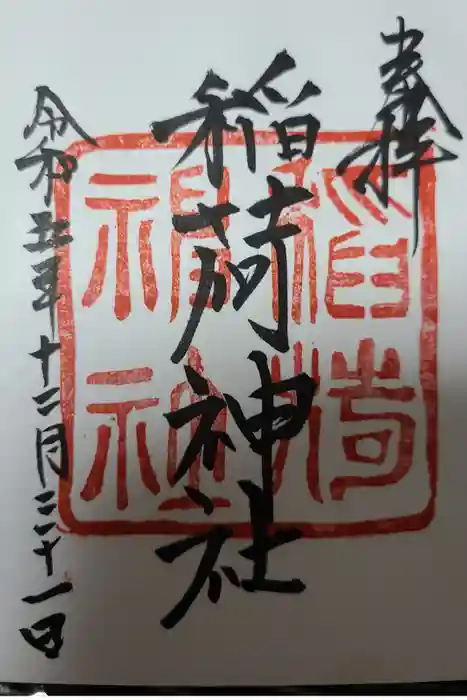 奉拝
稲荷神社
令和五年十二月三十一日
稲荷
神社